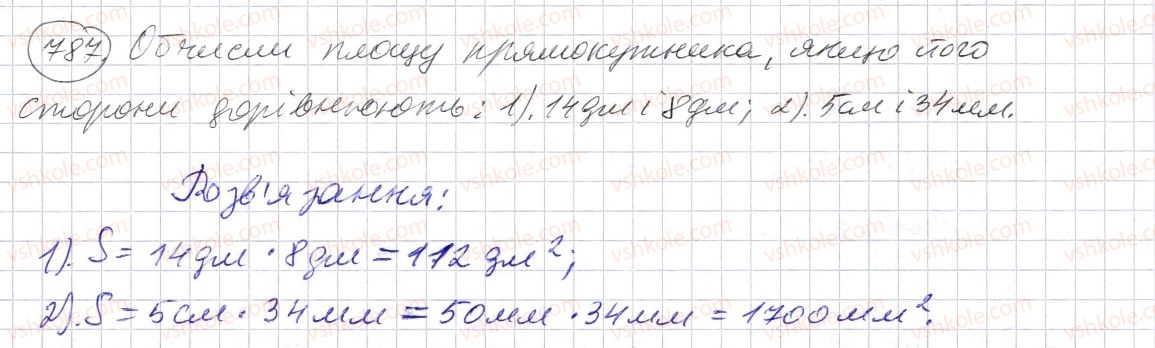 787. Обчисли площу прямокутника, якщо його
сторони дорівнюють: 1). 14дм і 8дм; 2). 5см і 34мм.
Розв'язання:
1). S = 14дм · 8дм = 112 дм²;
2). S = 5см · 34мм = 50мм · 34мм = 1700мм².